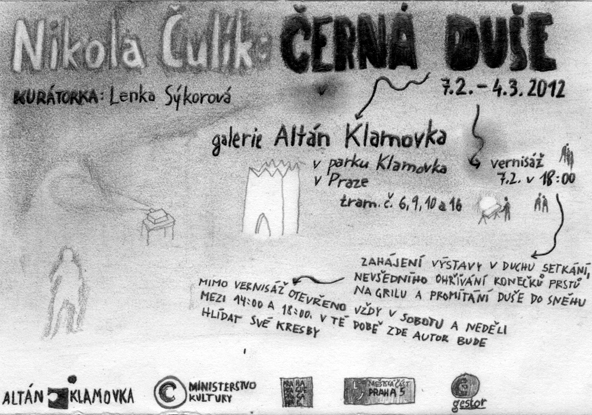 Nikola Čulík: ČERNÁ DUŠE
KURÁTORKA: Lenka Sýkorová
7.2. – 4.3. 2012
galerie Altán Klamovka
v parku Klamovka
v Praze
tram. č. 6, 9, 10 a 16
vernisáž
7.2. v 18:00
ZAHÁJENÍ VÝSTAVY V DUCHU SETKÁNÍ,
NEVŠEDNÍHO OHŘÍVÁNÍ KONEČKŮ PRSTŮ
NA GRILU A PROMÍTÁNÍ DUŠE DO SNĚHU
MIMO VERNISÁŽ OTEVŘENO VŽDY V SOBOTU A NEDĚLI
MEZI 14:00 A 18:00. V TÉ DOBĚ ZDE AUTOR BUDE
HLÍDAT SVÉ KRESBY
ALTÁN KLAMOVKA
MINISTERSTVO
KULTURY
MĚSTSKÁ ČÁST
PRAHA 5
gestor